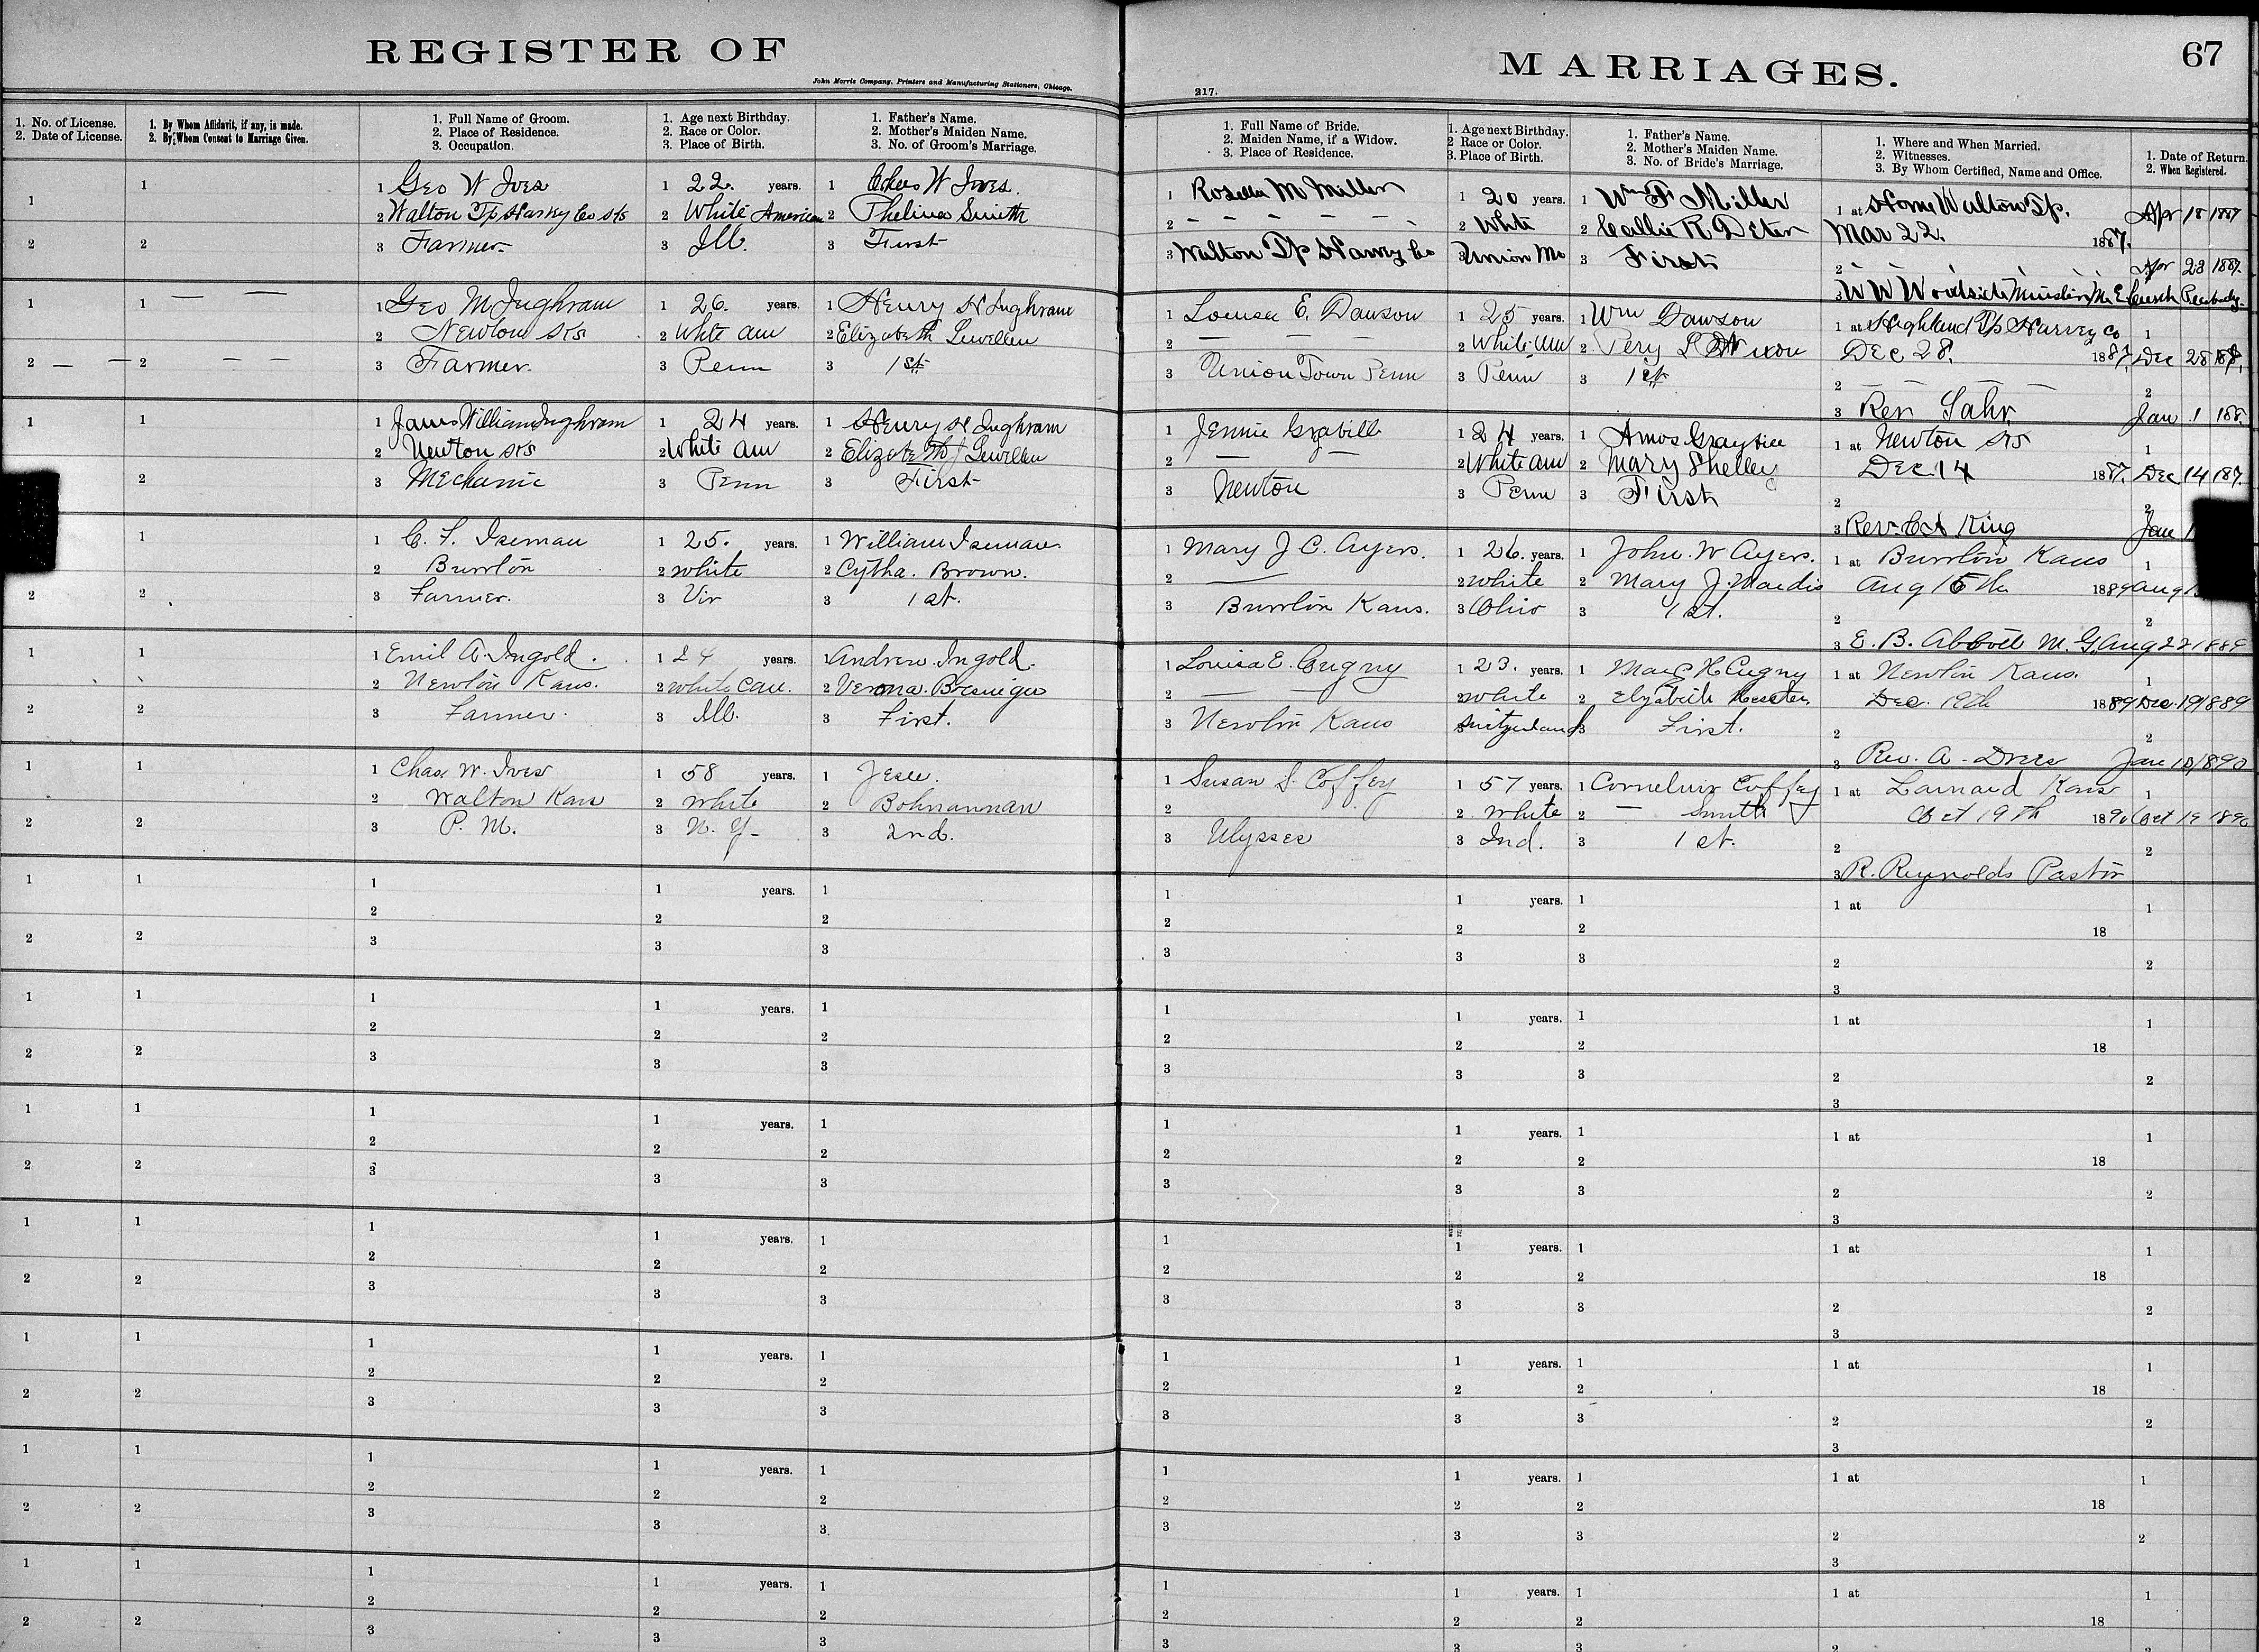 REGISTER OF
John Morris Company, Printers and Manufacturing Stationers, Chicago.
1. No. of License.
2. Date of License.
1. By Whom Affidavit, if any, is made.
2. By Whom Consent to Marriage Given.
1. Full Name of Groom.
2. Place of Residence.
3. Occupation.
1. Age next Birthday.
2. Race or Color.
3. Place of Birth.
1. Father's Name.
2. Mother's Maiden Name.
3. No. of Groom's Marriage.
MARRIAGES.
67
217.
1. Full Name of Bride.
2. Maiden Name, if a Widow.
3. Place of Residence.
1. Age next Birthday.
2 Race or Color.
3. Place of Birth.
1. Father's Name.
2. Mother's Maiden Name.
3. No. of Bride's Marriage.
1. Where and When Married.
2. Witnesses.
3. By Whom Certified, Name and Office.
1. Date of Return.
2. When Registered.
1 Geo W Ives
2 Walton Tp Harvey Co Ks
3 Farmer
1 22. years.
2 White American
3 Ill.
1 Chas W Ives.
2 Smith
3 First
1 Rosella M Miller
2 – – – – –
3 Walton Tp Harvey Co
1 20 years.
2 White
3 Union Mo
1 Wm F Miller
2 Callie R Deter
3 First
1 at Home Walton Tp.
Mar 22. 1887.
2
3 W W Woodside Minister M. E Church Peabody
Apr 18 1887
Apr 23 1887.
1 Geo M Inghram
2 Newton Ks
3 Farmer.
1 26. years.
2 White am
3 Penn
1 Henry H Inghram
2 Elizabeth Lewellen
3 1st
1 Louisa E. Dawson
2 — —
3 Union Town Penn
1 25 years.
2 White Am
3 Penn
1 Wm Dawson
2 Nixon
3 1st
1 at Highland Tp Harvey Co
Dec 28. 1887.
2 — — — —
3 Rev Lahr
1 Dec 28 188
2 Jan 1 188
1 James William Inghram
2 Newton Ks
3 Mechanic
1 24 years.
2 White am
3 Penn
1 Henry H Inghram
2 Elizabeth J Lewellen
3 First
1 Jennie Grabill
2 — —
3 Newton
1 24 years.
2 White am
3 Penn
1 Amos Graybill
2 Mary Shelley
3 First
1 at Newton Ks
Dec 14 1887.
2
3 Rev. C A King
1 Dec 14 187.
2 Jan 1
1 C. F. Iseman
2 Burrton
3 Farmer.
1 25. years.
2 white
3 Vir
1 William Iseman.
2 Cytha. Brown.
3 1st.
1 Mary J C. Ayers.
2 —
3 Burrton Kans.
1 26. years.
2 white
3 Ohio
1 John. W Ayers.
2 Mary J. Mardis
3 1st.
1 at Burrton Kans
Aug 15th 1889
2
3 E. B. Abbott M. G.
1 Aug 1
2 Aug 22 1889
1 Emil A. Ingold.
2 Newton Kans.
3 Farmer.
1 24 years.
2 white Cau.
3 Ill.
1 Andrew. Ingold.
2 Verona.
3 First.
1 Louisa E. Cugny
2 — —
3 Newton Kans
1 23. years.
2 White
3 Switzerland
1 H Cugny
2
3 First.
1 at Newton Kans.
Dec. 19th 1889
2
3 Rev. A. Dreer
1 Dec. 19 1889
2 Jan 10 1890
1 Chas. W. Ives
2 Walton Kans
3 P. M.
1 58 years.
2 White
3 N. Y.
1 Jesse.
2 Bohnannan
3 2nd.
1 Susan S. Coffey
2
3 Ulysses
1 57 years.
2 White
3 Ind.
1 Cornelius Coffey
2 — Smith
3 1st.
1 at Larnard Kans
Oct 19th 1890
2
3 R. Reynolds Pastor
1 Oct 19 1890
2